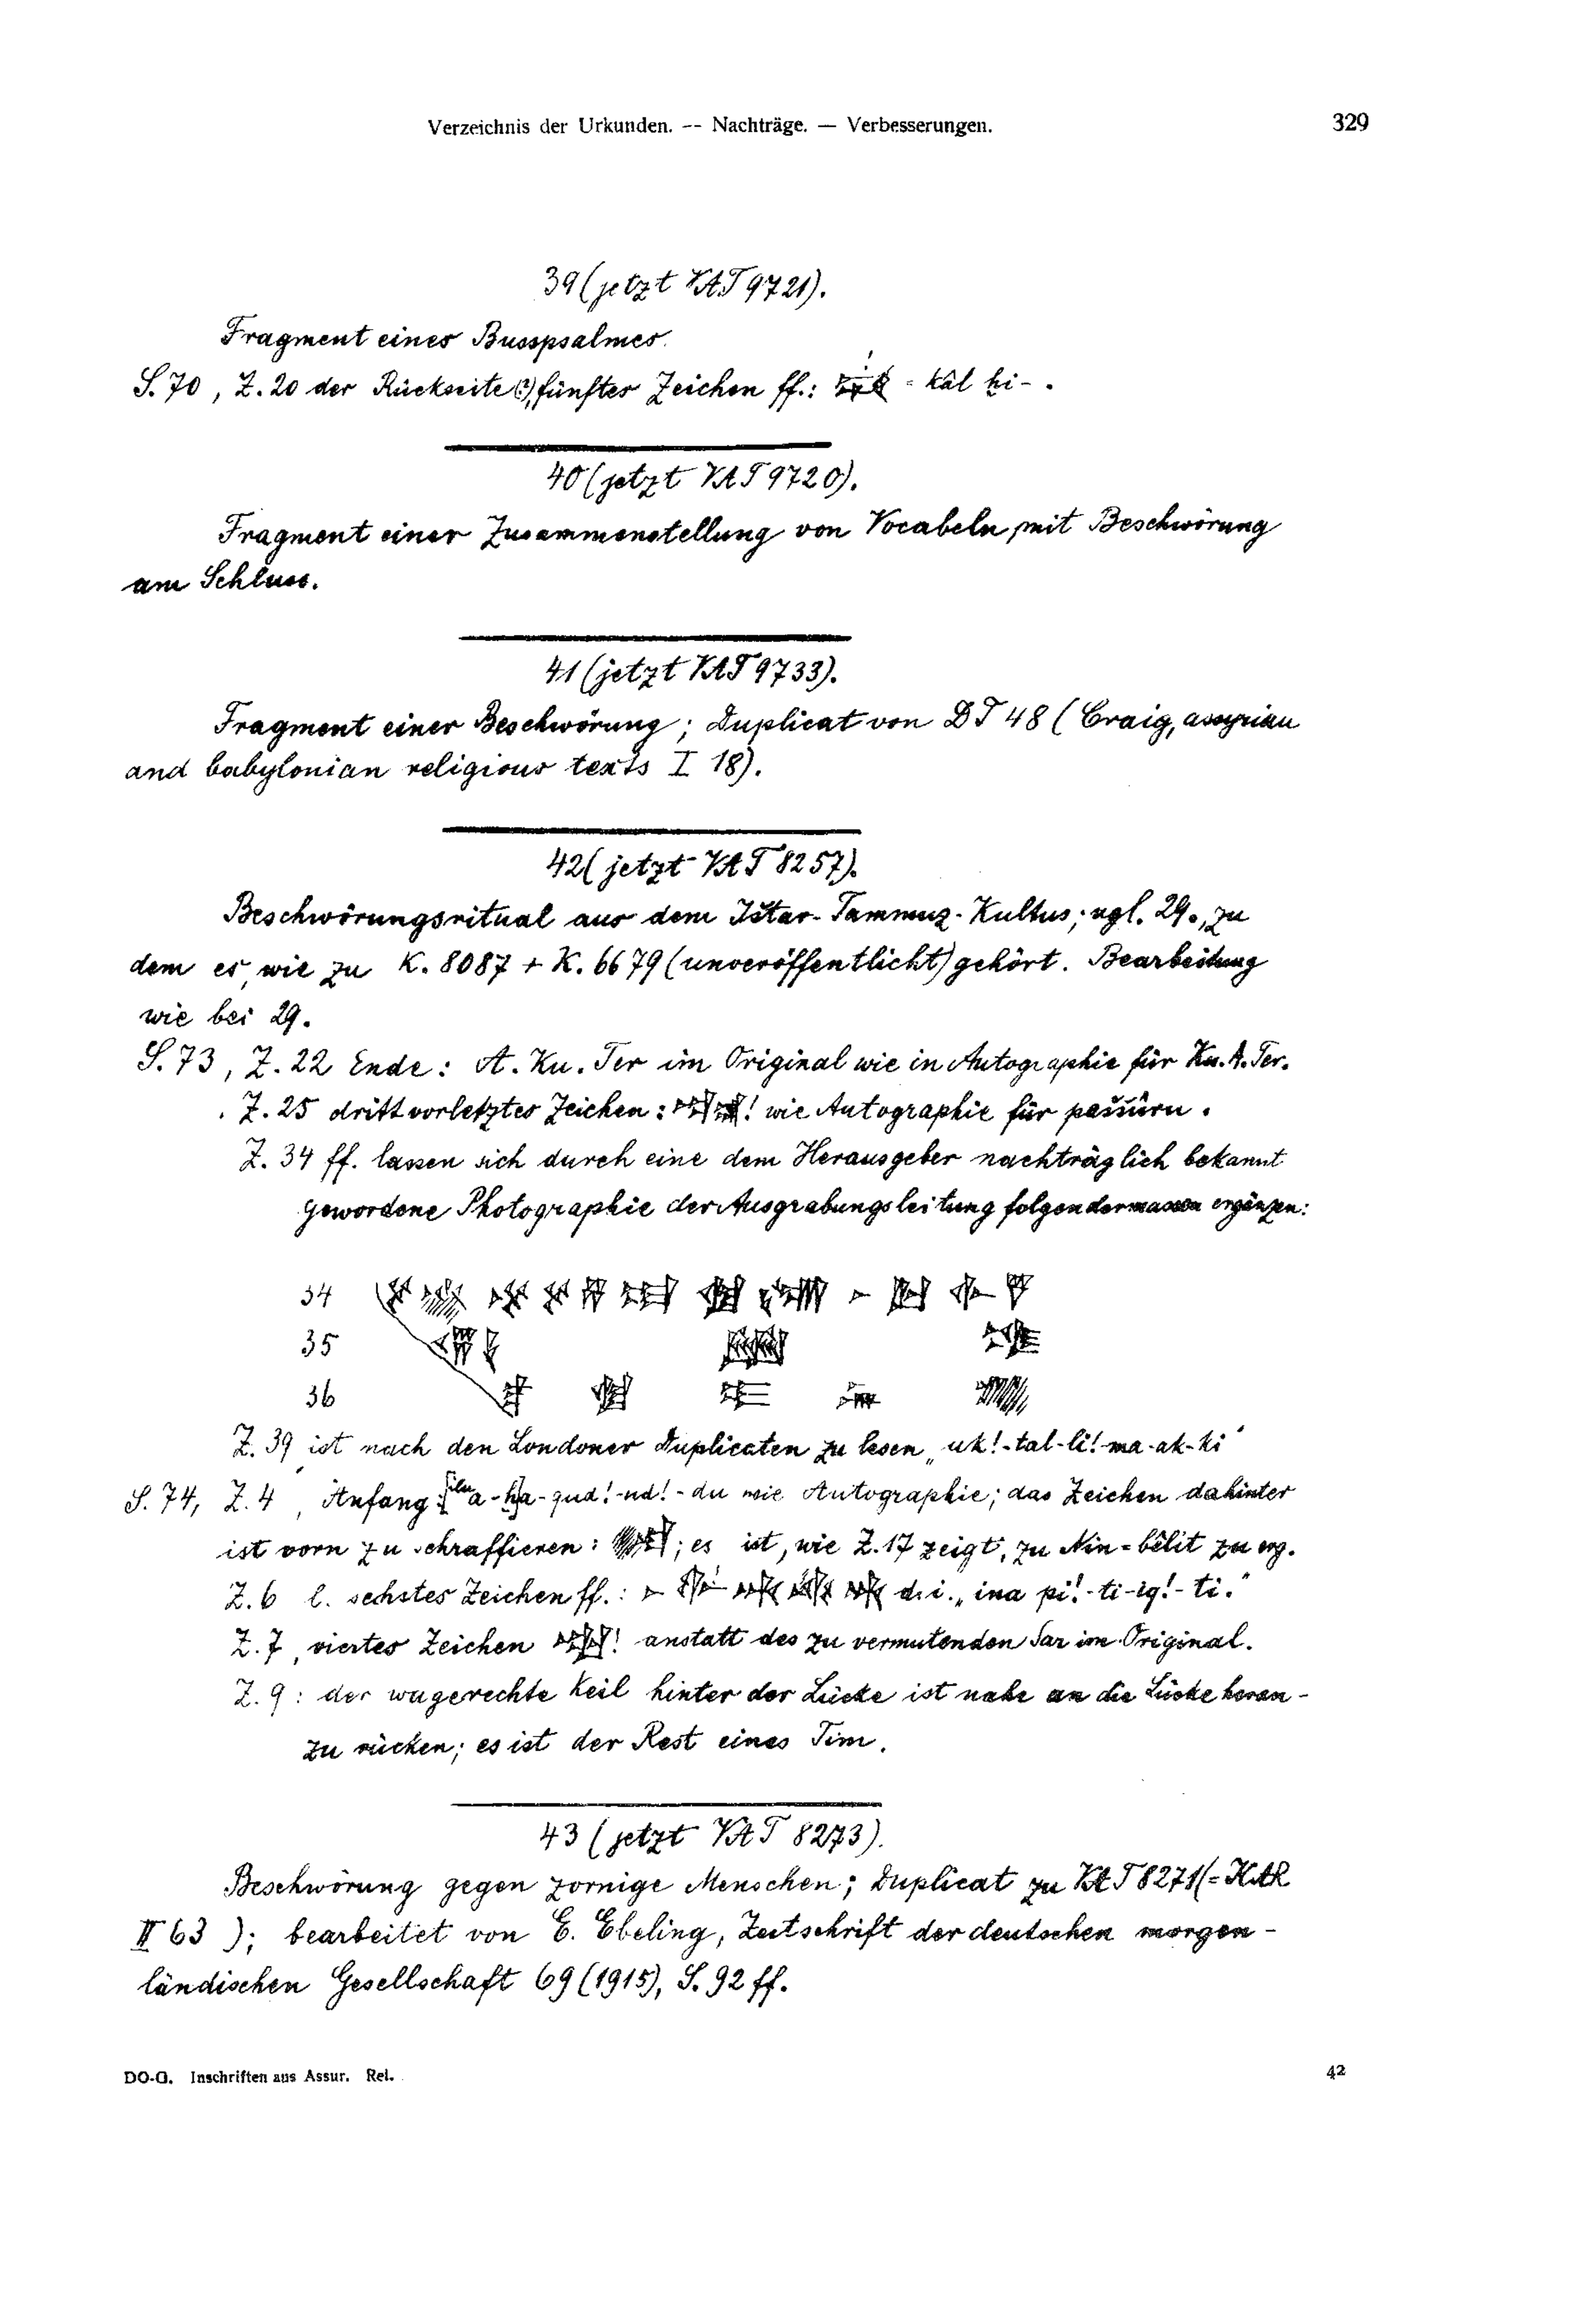 Verzeichnis der Urkunden. -- Nachträge. — Verbesserungen. 329
39 (jetzt VAT 9721).
Fragment eines Busspsalmes.
S. 70, Z. 20 der Rückseite(?), fünftes Zeichen ff.: = kâl ḫi- .
40 (jetzt VAT 9720).
Fragment einer Zusammenstellung von Vocabeln, mit Beschwörung
am Schluss.
41 (jetzt VAT 9733).
Fragment einer Beschwörung; Duplicat von DT 48 (Craig, assyrian
and babylonian religious texts I 18).
42 (jetzt VAT 8257).
Beschwörungsritual aus dem Ištar-Tammuz-Kultus; vgl. 29., zu
dem es, wie zu K. 8087 + K. 6679 (unveröffentlicht) gehört. Bearbeitung
wie bei 29.
S. 73, Z. 22 Ende: A. Ku. Ter im Original wie in Autographie für Ku. A. Ter.
Z. 25 drittvorletztes Zeichen: ! wie Autographie für paššûru.
Z. 34 ff. lassen sich durch eine dem Herausgeber nachträglich bekannt
gewordene Photographie der Ausgrabungsleitung folgendermassen ergänzen:
34
35
36
Z. 39 ist nach den Londoner Duplicaten zu lesen „uk!-tal-li!-ma-ak-ki"
S. 74, Z. 4, Anfang: [ilu a-ḫ]a-qud!-ud!-du wie Autographie; das Zeichen dahinter
ist vorn zu schraffieren: ; es ist, wie Z. 17 zeigt, zu Nin = bêlit zu erg.
Z. 6 l. sechstes Zeichen ff.: d. i. „ina pi!-ti-iq!-ti."
Z. 7, viertes Zeichen ! anstatt des zu vermutenden Sar im Original.
Z. 9: der wagerechte Keil hinter der Lücke ist nahe an die Lücke heran-
zu rücken; es ist der Rest eines Tim.
43 (jetzt VAT 8273).
Beschwörung gegen zornige Menschen; Duplicat zu VAT 8271 (= KAR
II 63 ); bearbeitet von E. Ebeling, Zeitschrift der deutschen morgen-
ländischen Gesellschaft 69 (1915), S. 92 ff.
DO-G. Inschriften aus Assur. Rel. 42